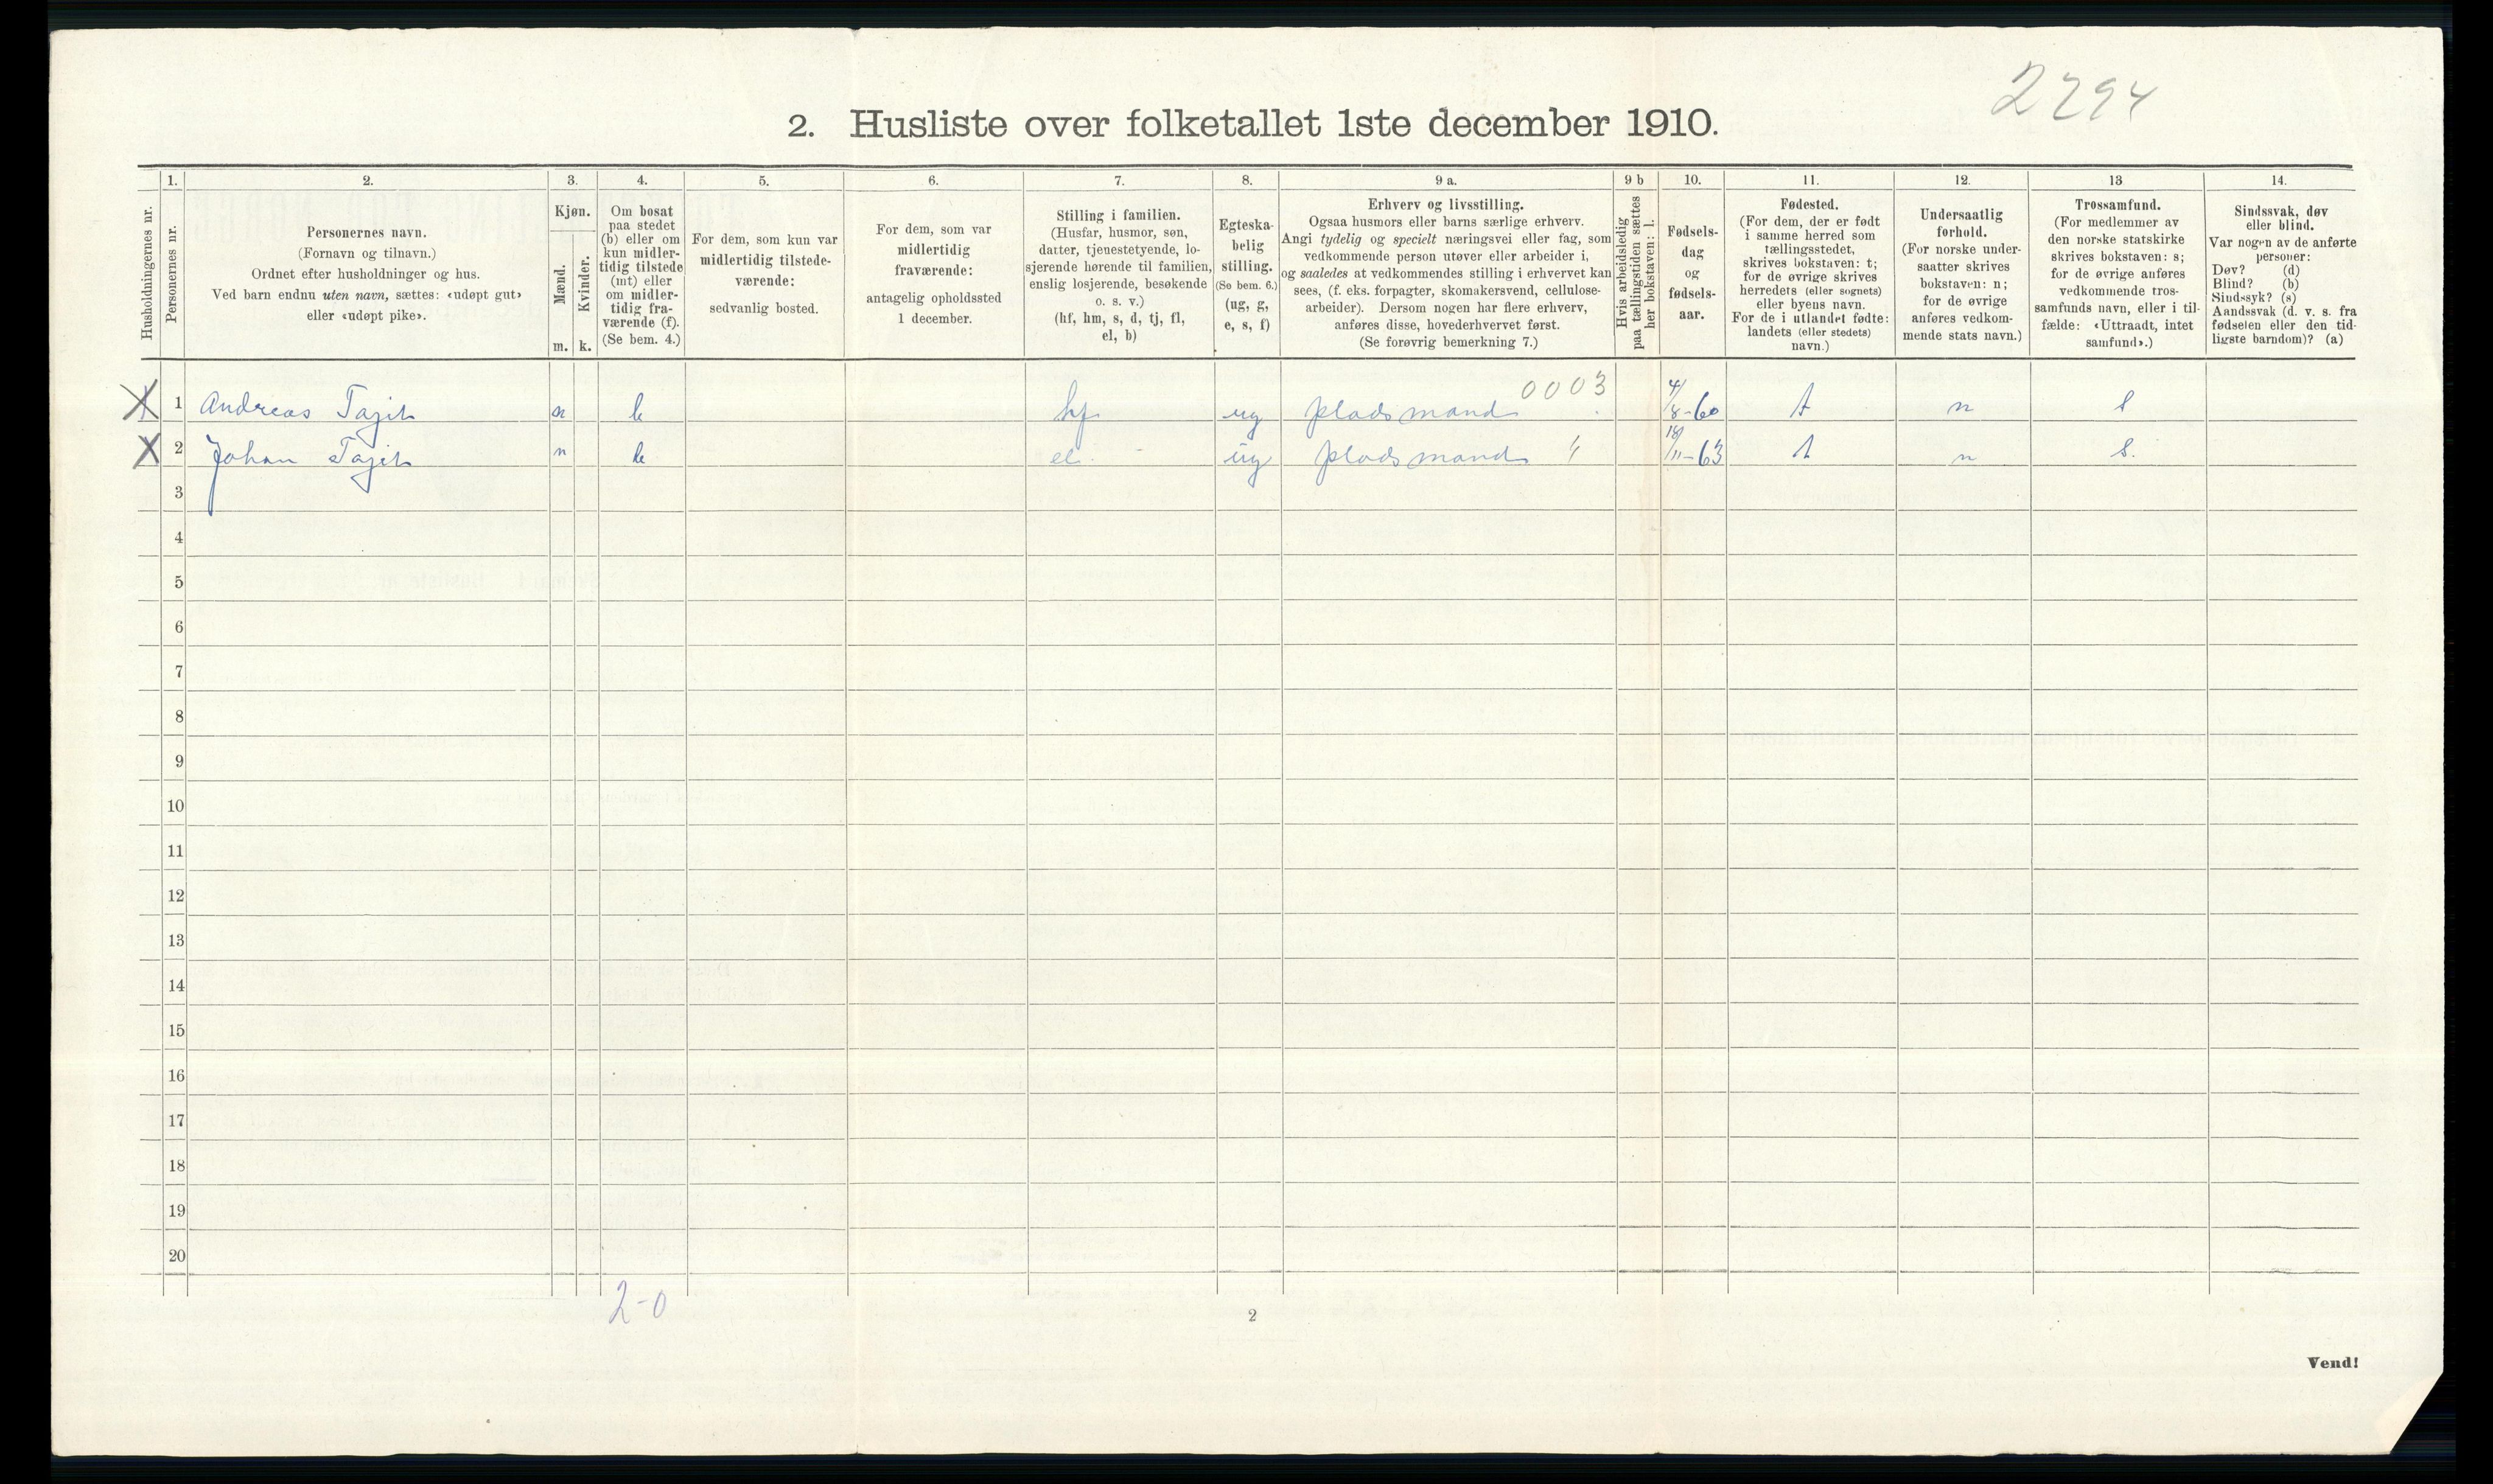 2294
2. Husliste over folketallet 1ste december 1910.
Husholdningernes nr.
1.
Personernes nr.
2.
Personernes navn.
(Fornavn og tilnavn.)
Ordnet efter husholdninger og hus.
Ved barn endnu uten navn, sættes: «udøpt gut»
eller «udøpt pike».
3.
Kjøn.
Mænd.
Kvinder.
m. k.
4.
Om bosat
paa stedet
(b) eller om
kun midler-
tidig tilstede
(mt) eller
om midler-
tidig fra-
værende (f).
(Se bem. 4.)
5.
For dem, som kun var
midlertidig tilstede-
værende:
sedvanlig bosted.
6.
For dem, som var
midlertidig
fraværende:
antagelig opholdssted
1 december.
7.
Stilling i familien.
(Husfar, husmor, søn,
datter, tjenestetyende, lo-
sjerende hørende til familien,
enslig losjerende, besøkende
o. s. v.)
(hf, hm, s, d, tj, fl,
el, b)
8.
Egteska-
belig
stilling.
(Se bem. 6.)
(ug, g,
e, s, f)
9 a.
Erhverv og livsstilling.
Ogsaa husmors eller barns særlige erhverv.
Angi tydelig og specielt næringsvei eller fag, som
vedkommende person utøver eller arbeider i,
og saaledes at vedkommendes stilling i erhvervet kan
sees, (f. eks. forpagter, skomakersvend, cellulose-
arbeider). Dersom nogen har flere erhverv,
anføres disse, hovederhvervet først.
(Se forøvrig bemerkning 7.)
9 b
Hvis arbeidsledig
paa tællingstiden sættes
her bokstaven: l.
10.
Fødsels-
dag
og
fødsels-
aar.
11.
Fødested.
(For dem, der er født
i samme herred som
tællingsstedet,
skrives bokstaven: t;
for de øvrige skrives
herredets (eller sognets)
eller byens navn.
For de i utlandet fødte:
landets (eller stedets)
navn.)
12.
Undersaatlig
forhold.
(For norske under-
saatter skrives
bokstaven: n;
for de øvrige
anføres vedkom-
mende stats navn.)
13
Trossamfund.
(For medlemmer av
den norske statskirke
skrives bokstaven: s;
for de øvrige anføres
vedkommende tros-
samfunds navn, eller i til-
fælde: «Uttraadt, intet
samfund».)
14.
Sindssvak, døv
eller blind.
Var nogen av de anførte
personer:
Døv? (d)
Blind? (b)
Sindssyk? (s)
Aandssvak (d. v. s. fra
fødselen eller den tid-
ligste barndom)? (a)
X 1 Andreas m b hf ug pladsmand 0003 4/8-60 t n s
X 2 Johan m b el - ug pladsmand " 18/11-63 t n s.
3
4
5
6
7
8
9
10
11
12
13
14
15
16
17
18
19
20
2-0
2
Vend!